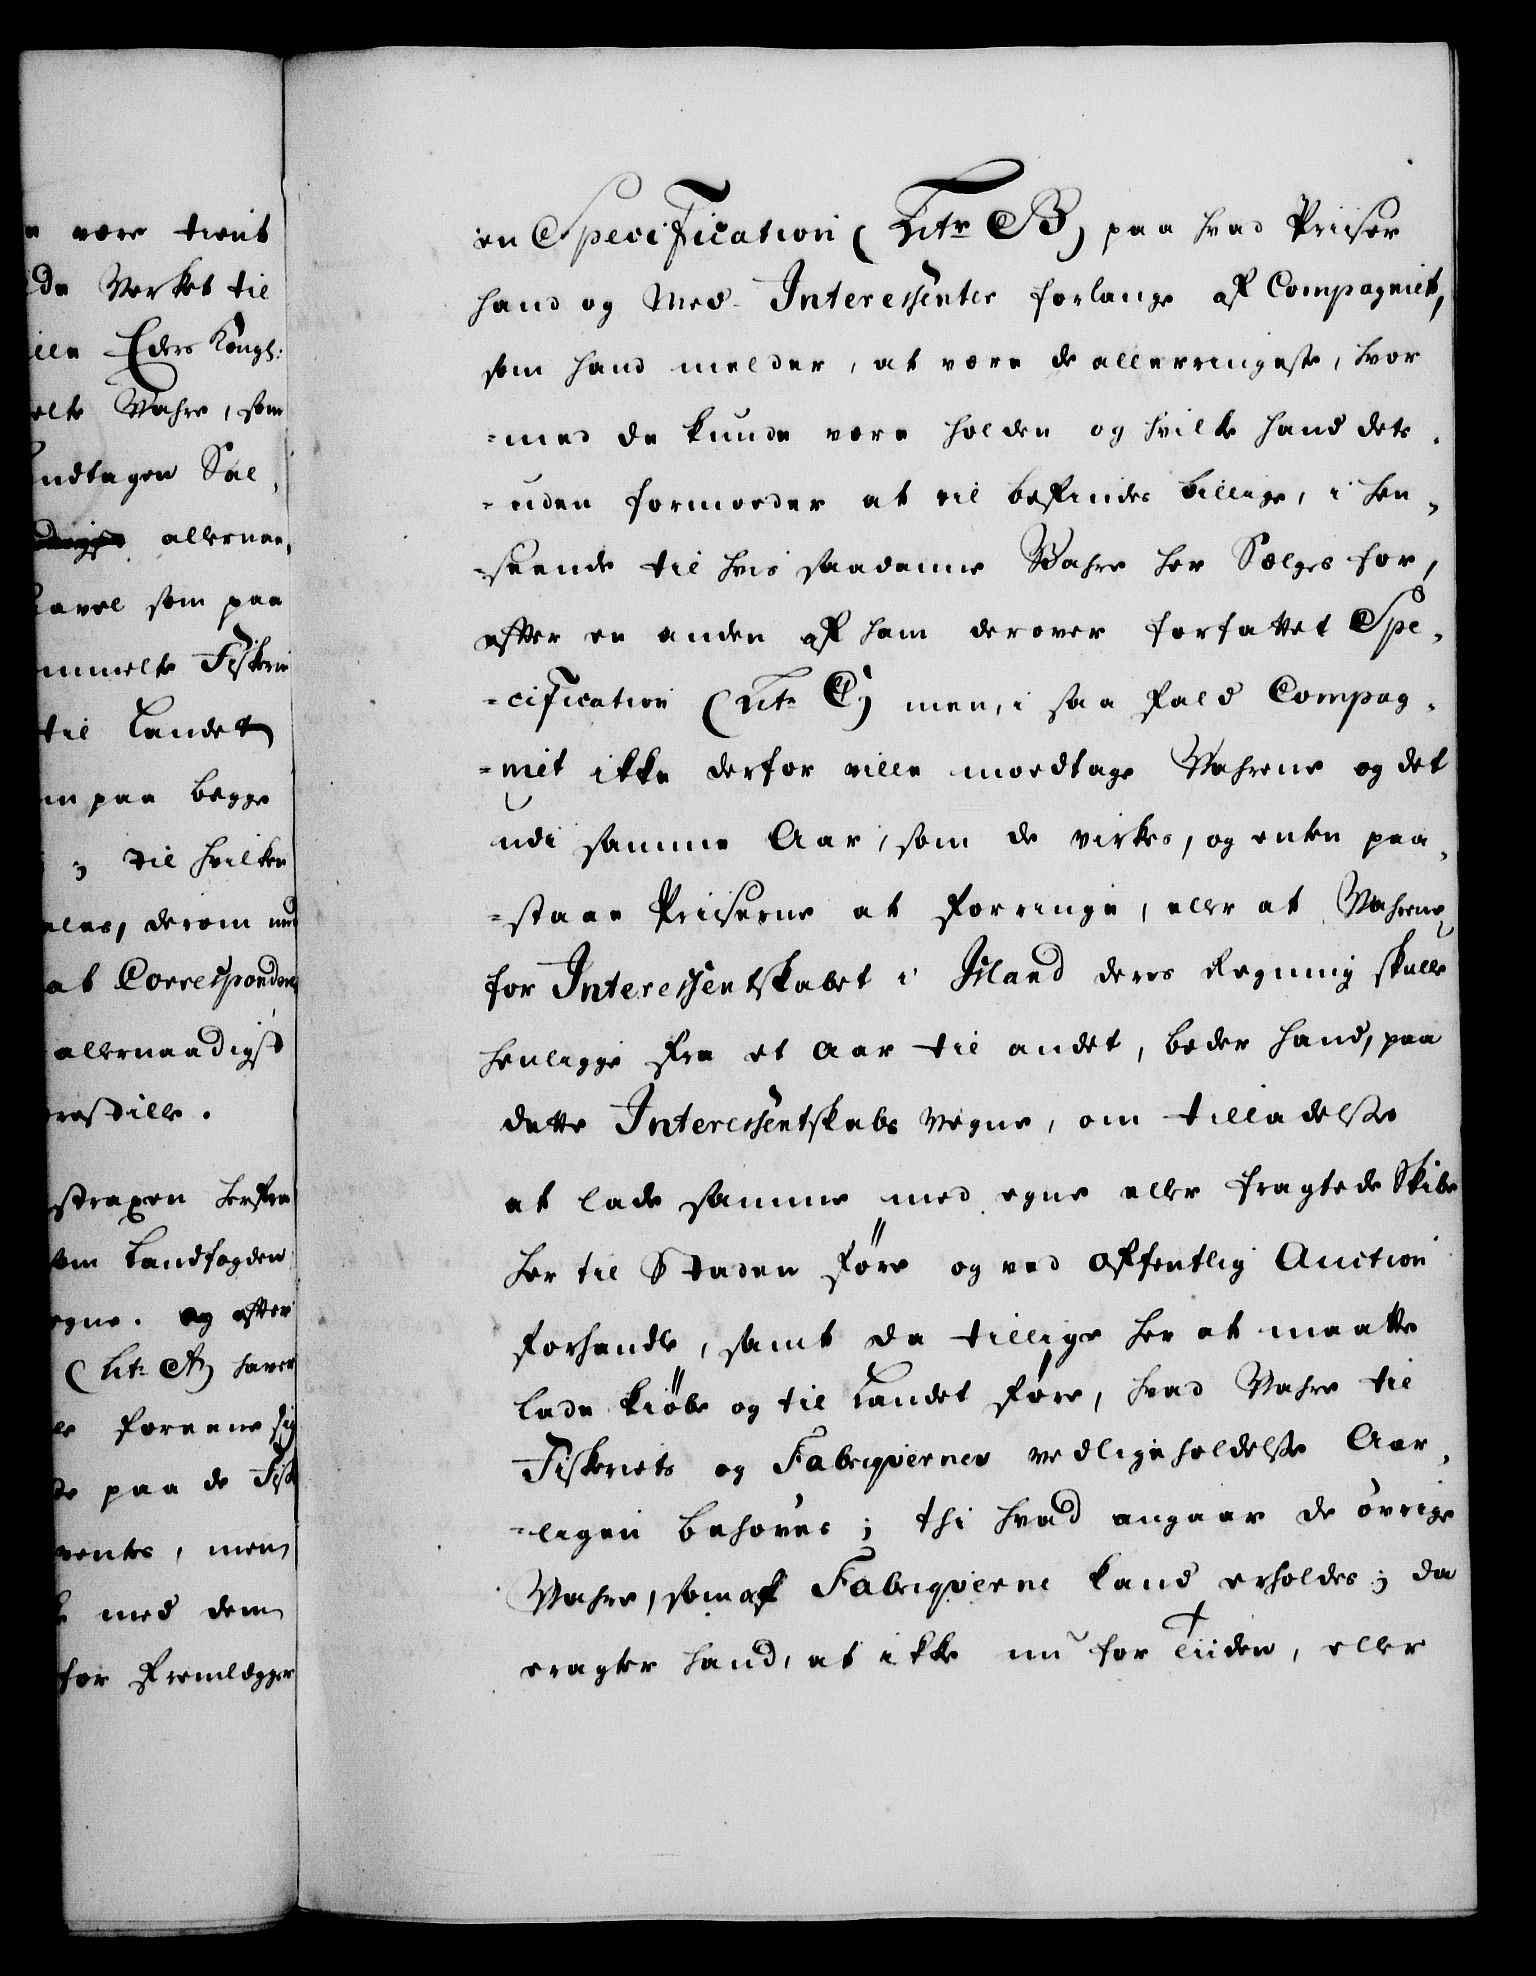 n være tient
de Verket til
ille Eders Kongl:
elte Wahre, som
undtagen Sal-
allernaa-
Lavel som paa
mmelte Fiskerie
til Landet
en paa begge
; til hvilken
eles, derom med
at Correspondere
allernaadigst
restille.
straxen herfra
som Landfogden
egne. og efter
(Litr A) haver
le foreene sig
te paa de Fisk
ventes, men
k med dem
for fremlegger
en Specification (Litr B) paa hvad Priiser
hand og Med-Interessenter forlange af Compagniet,
som hand melder, at være de allerringeste, hvor
-med de kunde være holden og hvilke hand des-
-uden formoeder at vil befindes billige, i hen-
-seende til hvis saadanne Wahre her Sælges for,
efter en anden af ham derover forfattet Spe-
-cification (Litr C) men, i saa fald Compag-
-niet ikke derfor ville moedtage Wahrene og det
udi samme Aar, som de virkes, og enten paa-
-staae Priiserne at forringe, eller at Wahrene
for Interessentskabet i Island deres Regning skulle
henligge fra et Aar til andet, beder hand, paa
dette Interessentskabs Vegne, om tilladelse
at lade samme med egne eller fragtede Skibe
her til Staden føre og ved offentlig Auction
forhandle, samt da tillige her at maatte
lade kiöbe og til Landet føre, hvad Wahre til
Fiskeriets og Fabriqvernes vedligeholdelse Aar-
-ligen behøves; thi hvad angaar de øvrige
Wahre, som af Fabriqverne kand erholdes; da
eragter hand, at ikke nu for Tiiden, eller